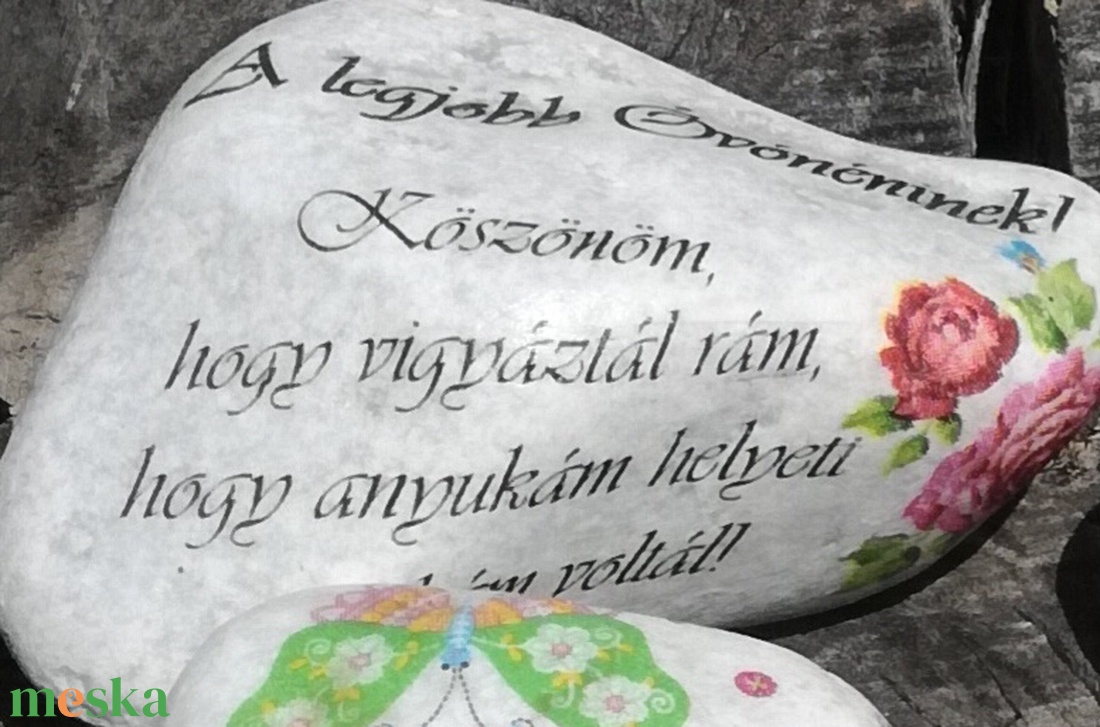 A legjobb Óvónéninek!
Köszönöm,
hogy vigyáztál rám,
hogy anyukám helyett
voltál!!
meska